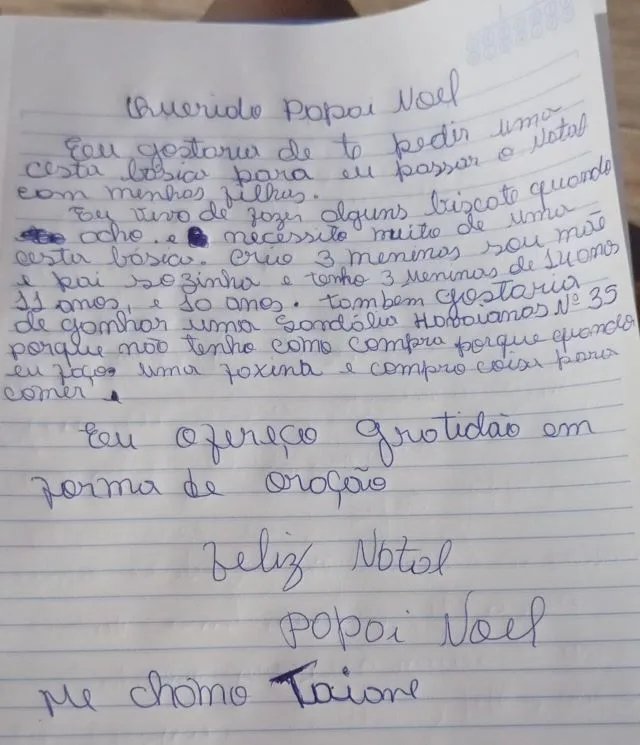 Querido Papai Noel
Eu gostaria de te pedir uma
cesta básica para eu passar o Natal
com minhas filhas.
Eu vivo de fazer alguns biscate quando
acho. e necessito muito de uma
cesta básica. crio 3 meninas sou mãe
e pai sozinha e tenho 3 meninas de 14 anos
11 anos, e 10 anos. também gostaria
de ganhar uma sandália Havaianas Nº 35
porque não tenho como compra porque quando
eu faço uma faxina e compro coisa para
comer.
Eu ofereço gratidão em
forma de oração
Feliz Natal
Papai Noel
Me chamo Taiane